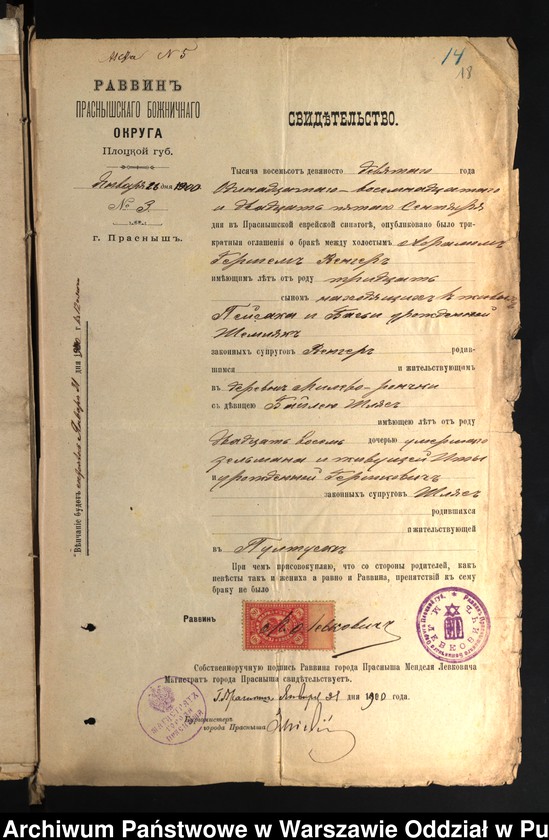 N 5
14
18
РАВВИНЪ
ПРАСНЫШСКАГО БОЖНИЧНАГО
ОКРУГА
Плоцкой губ.
Января 26 дня 1900
№ 3.
г. Праснышъ.
СВИДѢТЕЛЬСТВО.
Тысяча восемьсот девяносто девятаго года
и двадцать пятаго Сентября
дня в Праснышской еврейской синагогѣ, опубликовано было три-
кратныя оглашенiя о бракѣ между холостымъ Аврамомъ
Гершемъ Венгеръ
имѣющимъ лѣтъ отъ роду тридцать
сыномъ находящихся в живых
Пейсака и Басьи урожденной
законныхъ супруговъ Венгеръ родив-
шимся и жительствующимъ
въ деревнѣ
съ дѣвицею Байлею Шлясъ
имѣющею лѣтъ отъ роду
двадцать восемь дочерью умершаго
Зельмана и живущей Иты
урожденной Гершковичъ
законныхъ супруговъ Шлясъ
родившихся
и жительствующей
въ Пултускѣ
При чемъ присовокупляю, что со стороны родителей, какъ
невѣсты такъ и жениха а равно и Раввина, препятствiй къ сему
браку не было
Раввинъ М. Левковичъ
Собственноручную подпись Раввина города Прасныша Менделя Левковича
Магистратъ города Прасныша свидѣтельствуетъ.
г. Праснышъ, Января 31 дня 1900 года.
Бургомистръ
города Прасныша
Вѣнчанiе будетъ Января 31 дня 1900 г.
Archiwum Państwowe w Warszawie Oddział w Pu